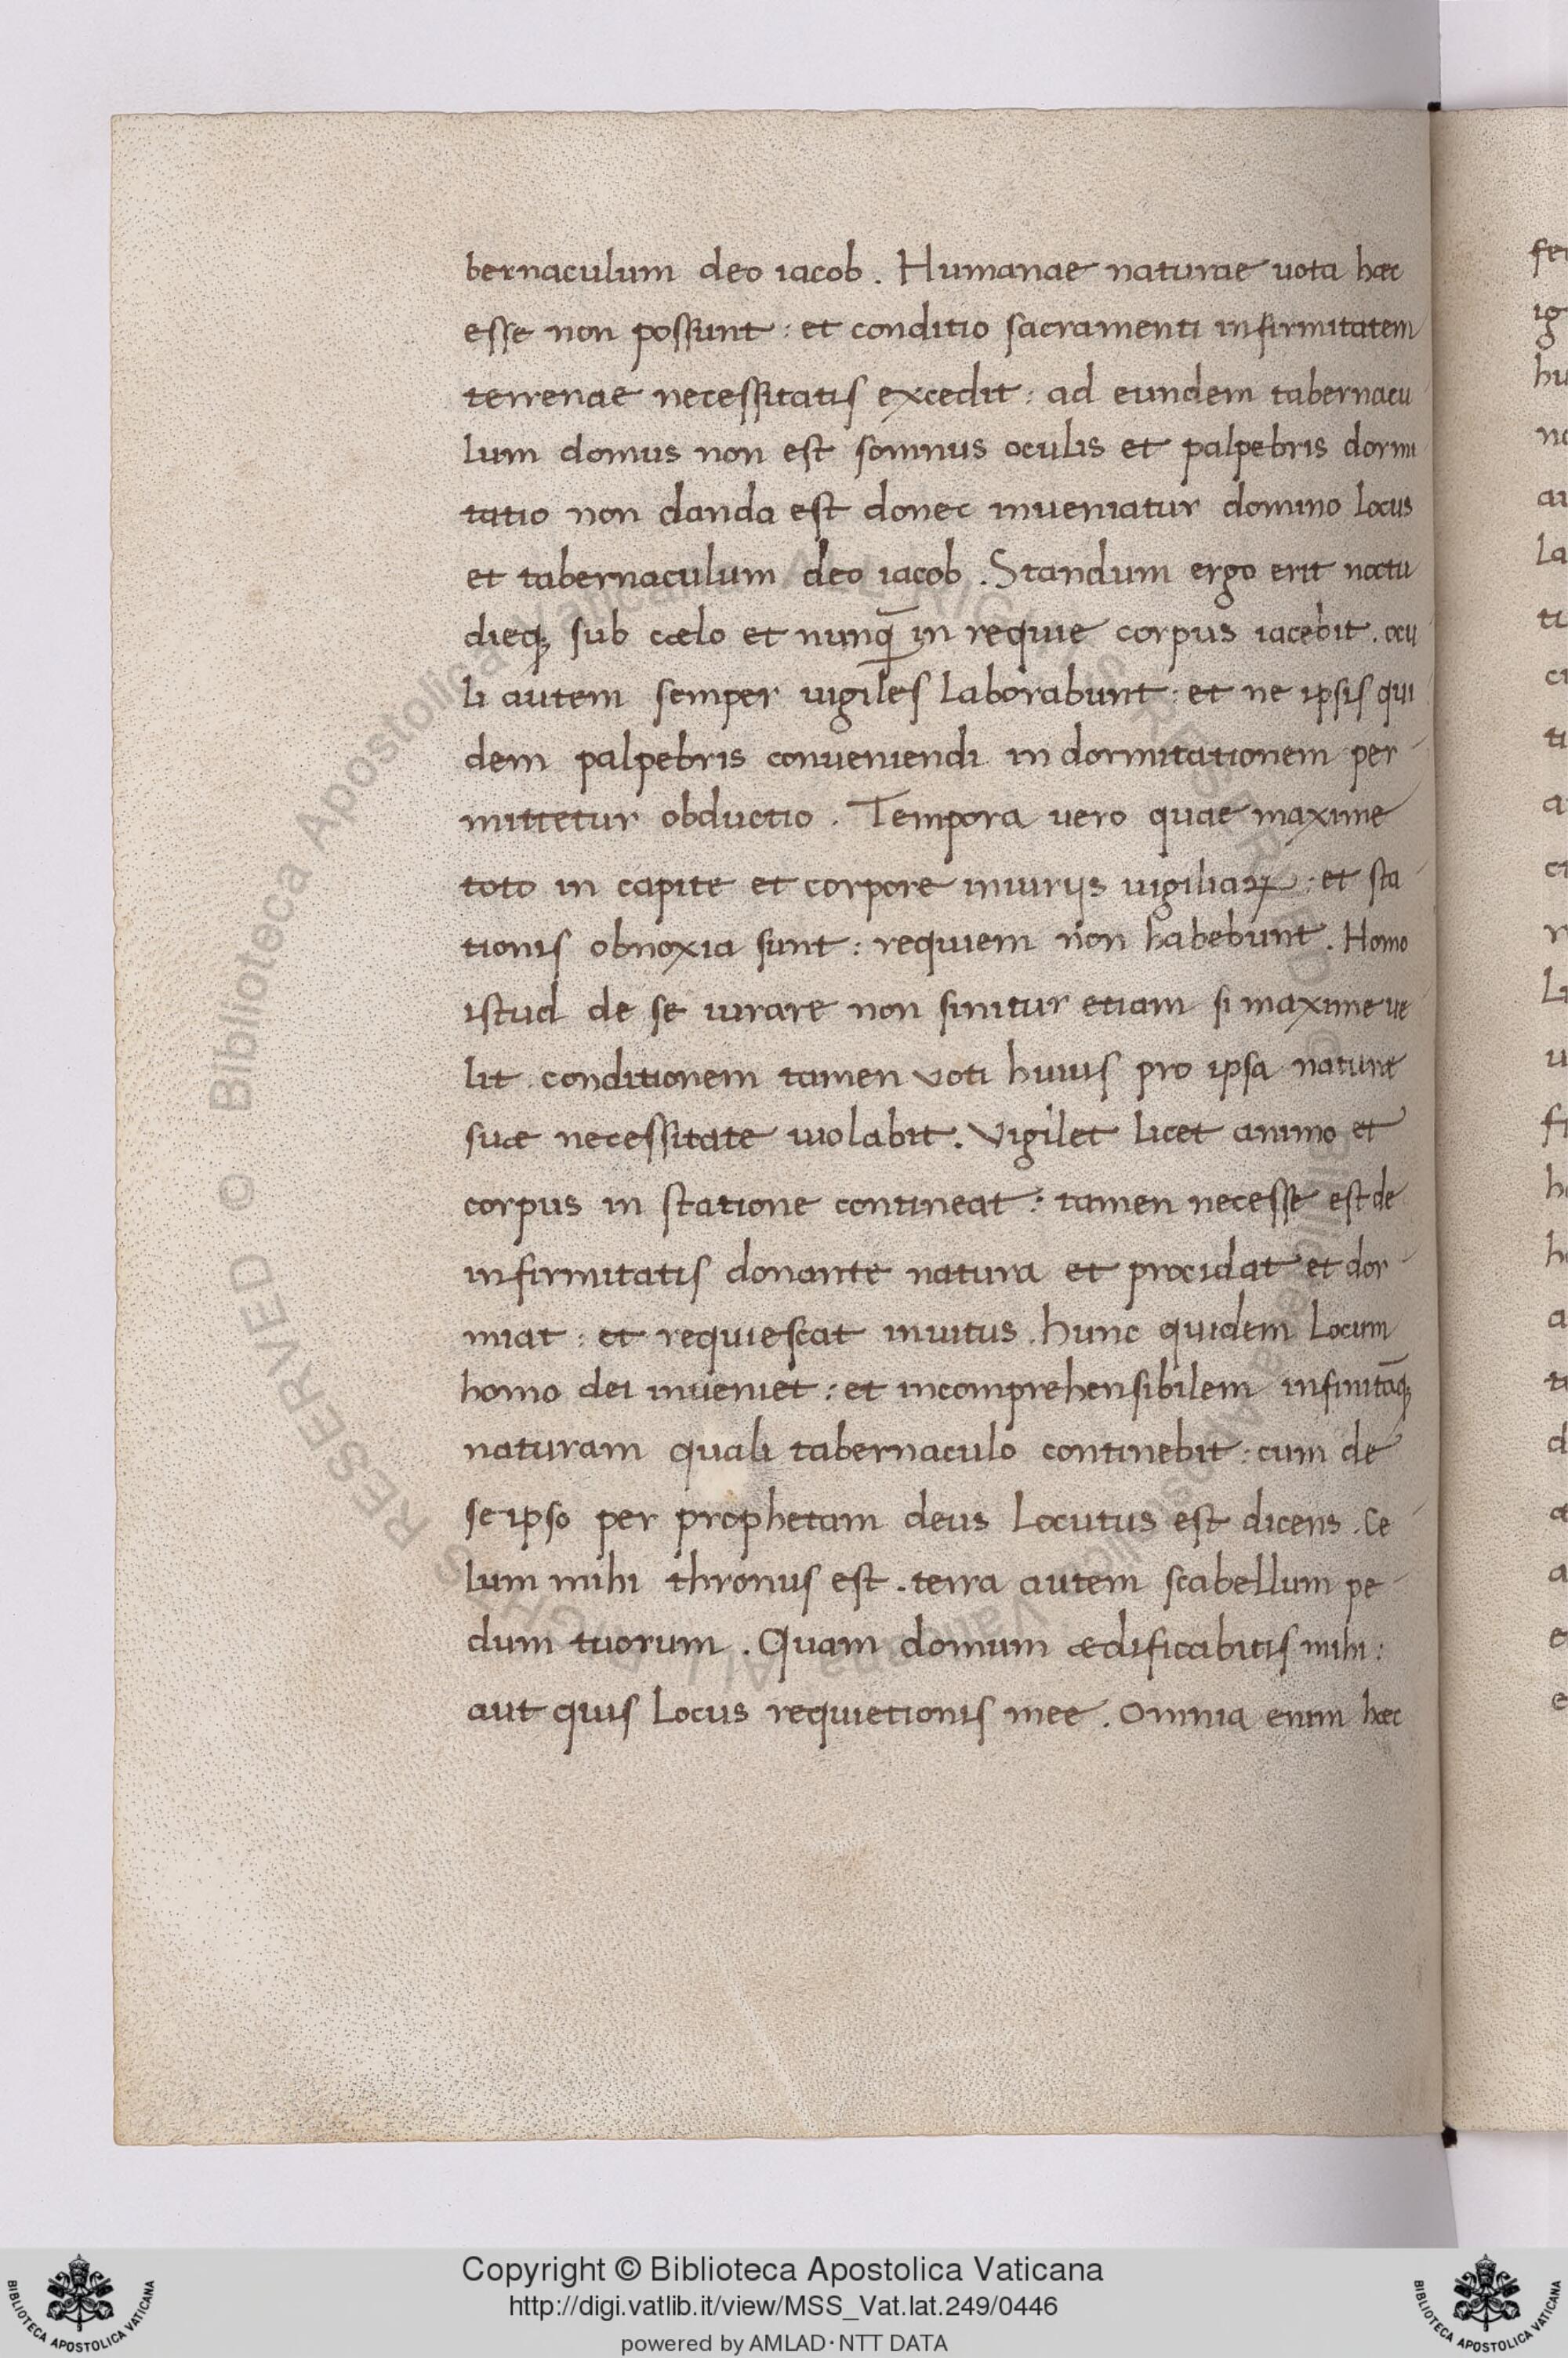 bernaculum deo iacob . Humanae naturae uota hæc
esse non possunt : et conditio sacramenti infirmitatem
terrenae necessitatis excedit : ad eundem tabernacu
lum domus non est somnus oculis et palpebris dormi
tatio non danda est donec inueniatur domino locus
et tabernaculum deo iacob . Standum ergo erit noctu
dieq; sub cælo et nunq̄ in requie corpus iacebit . ocu
li autem semper uigiles laborabunt : et ne ipsis qui
dem palpebris conueniendi in dormitationem per
mittetur obductio . Tempora vero quae maxime
toto in capite et corpore iniurijs uigiliaꝝ : et sta
tionis obnoxia sunt : requiem non habebunt . Homo
istud de se iurare non sinitur etiam si maxime ue
lit . conditionem tamen voti huius pro ipsa naturæ
suæ necessitate uiolabit . Vigilet licet animo et
corpus in statione contineat : tamen necesse est de
infirmitatis donante natura et procidat et dor
miat : et requiescat inuitus . hunc quidem locum
homo dei inueniet : et incomprehensibilem infinitāq;
naturam quali tabernaculo continebit : cum de
se ipso per prophetam deus locutus est dicens . Ce
lum mihi thronus est . terra autem scabellum pe
dum tuorum . Quam domum ædificabitis mihi :
aut quis locus requietionis mee . Omnia enim hæc
fe
ig
hu
no
au
la
ti
ci
ti
a
ci
n
li
u
fi
h
h
a
t
d
æ
a
e
e
© Biblioteca Apostolica Vaticana ALL RIGHTS RESERVED © Biblioteca Apostolica Vaticana ALL RIGHTS RESERVED
Copyright © Biblioteca Apostolica Vaticana
http://digi.vatlib.it/view/MSS_Vat.lat.249/0446
powered by AMLAD·NTT DATA
BIBLIOTECA APOSTOLICA VATICANA
BIBLIOTECA APOSTOLICA VATICANA